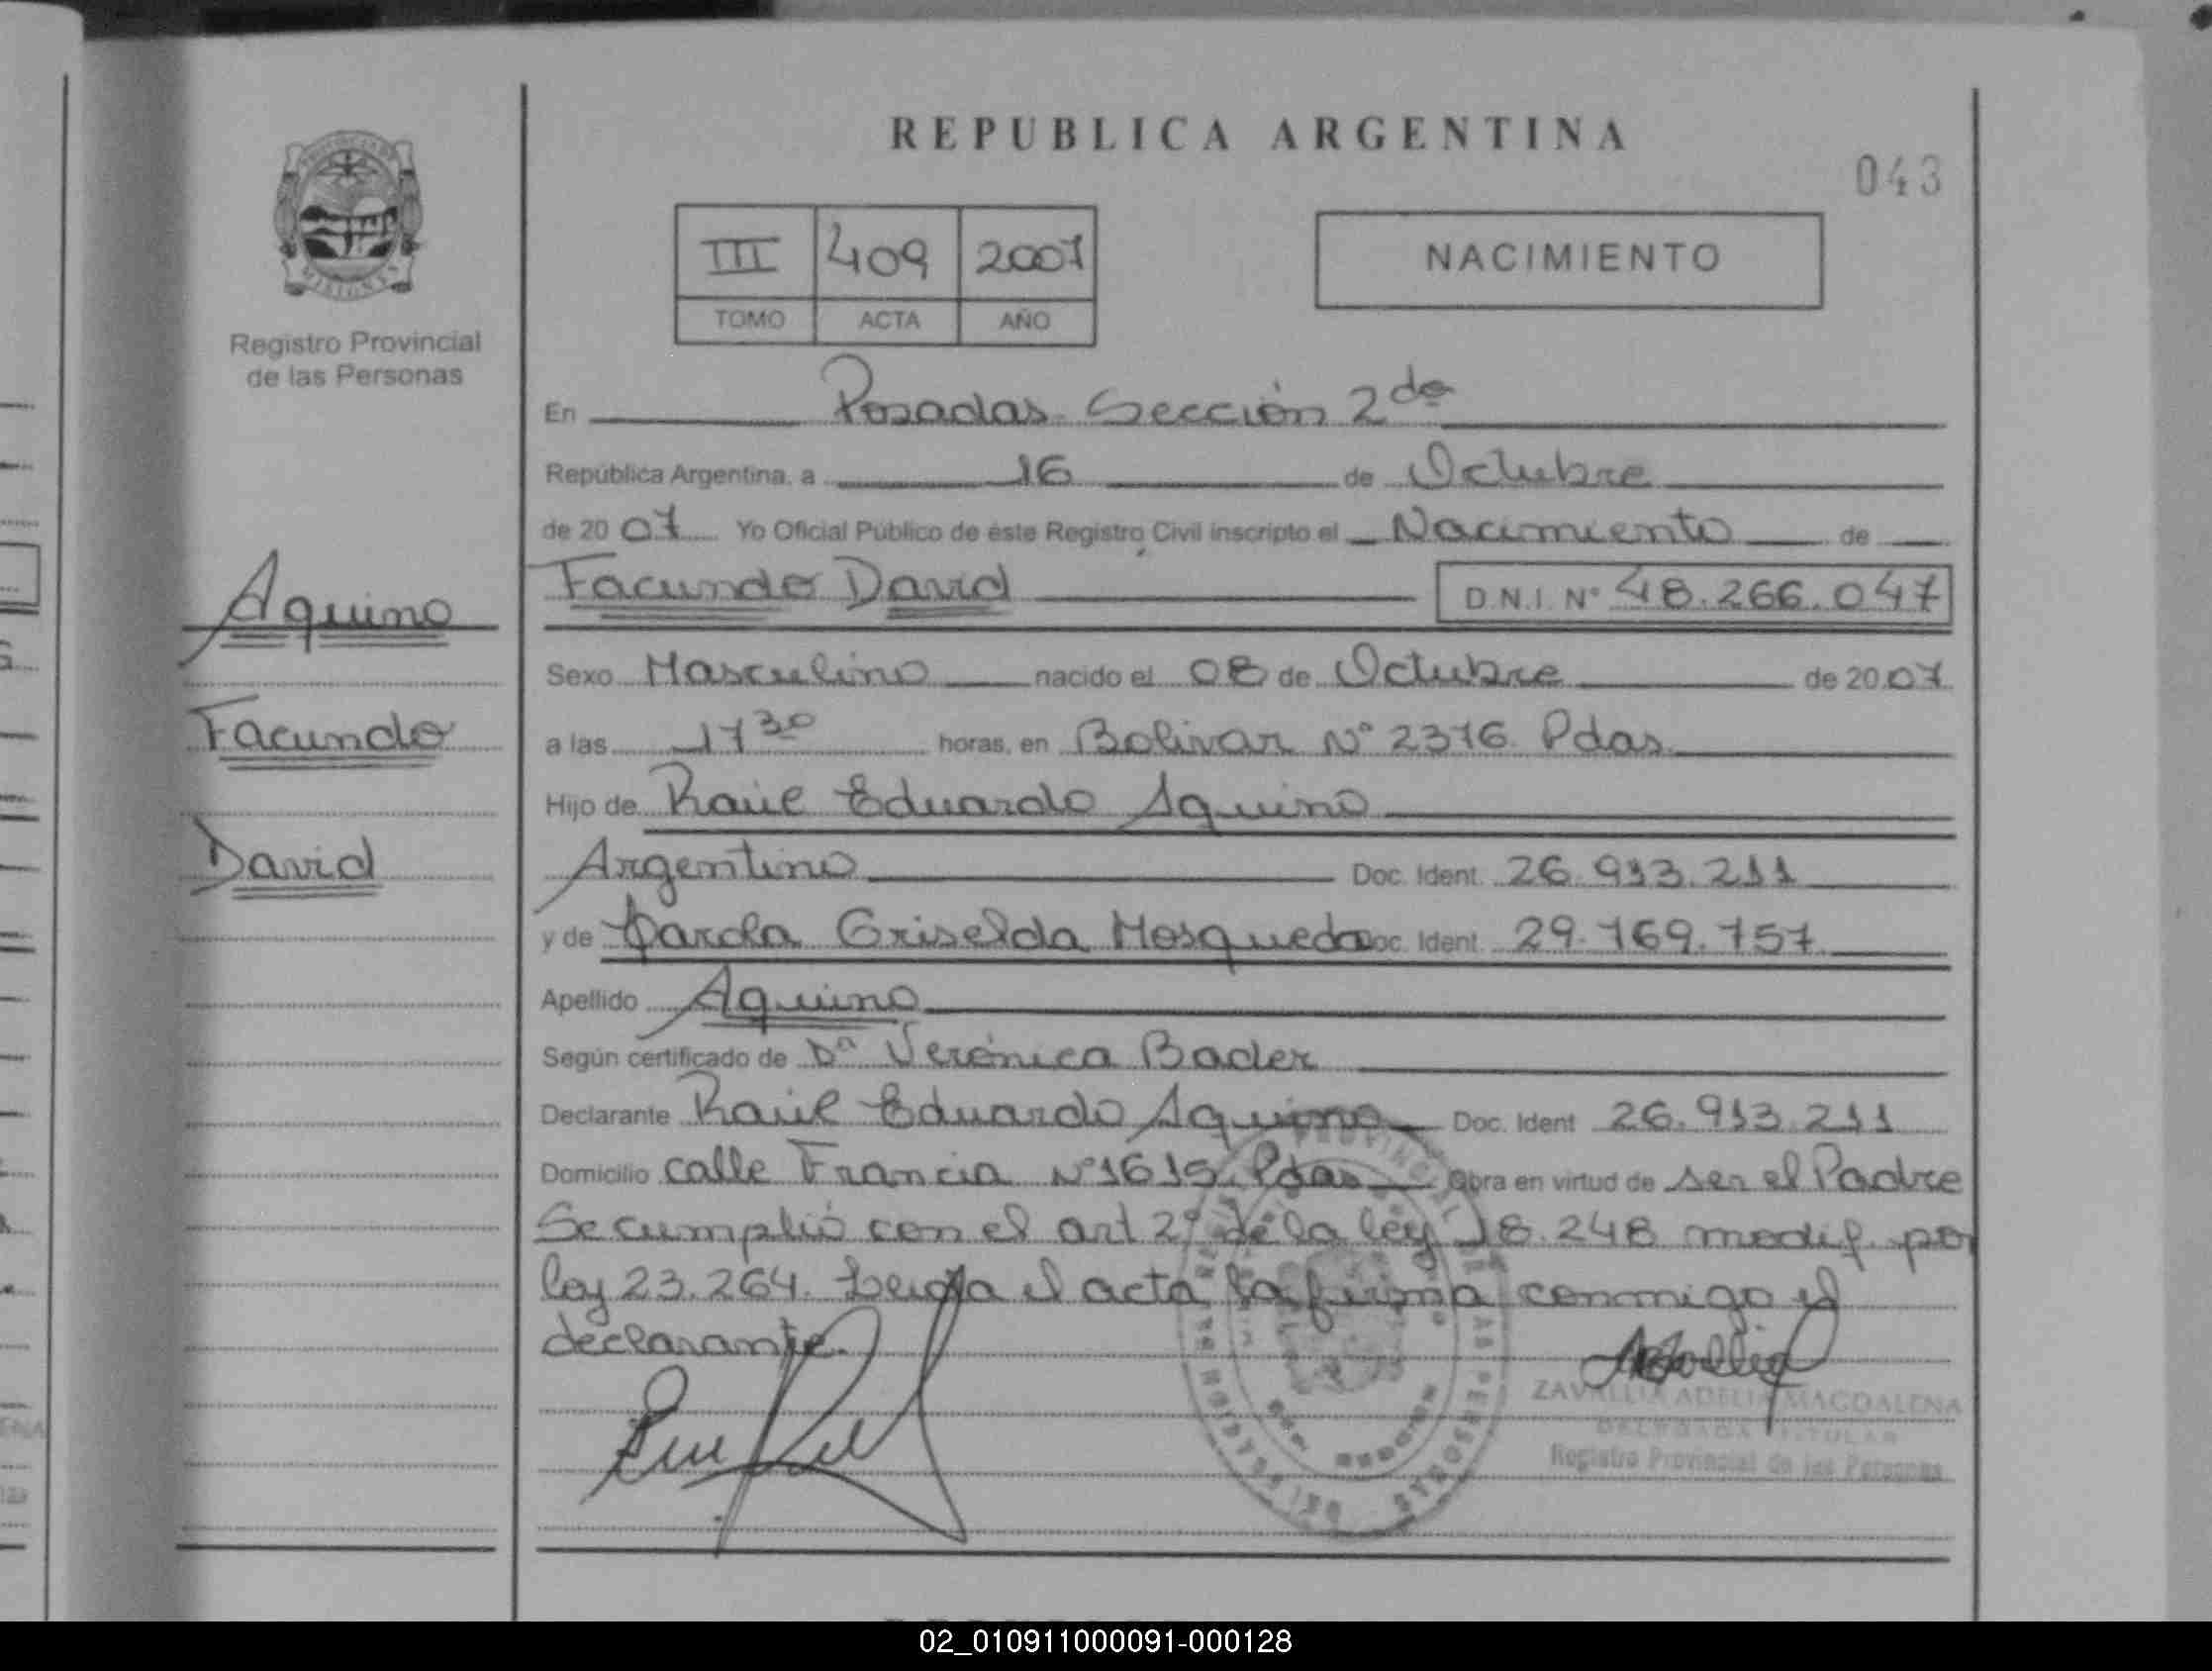 REPUBLICA ARGENTINA
043
III 409 2007
TOMO ACTA AÑO
NACIMIENTO
PROVINCIA DE
MISIONES
Registro Provincial
de las Personas
Aquino
Facundo
David
En Posadas Sección 2da
República Argentina, a 16 de Octubre
de 2007 Yo Oficial Público de éste Registro Civil inscripto el Nacimiento de
Facundo David D.N.I. N° 48.266.047
Sexo Masculino nacido el 08 de Octubre de 2007
a las 17 30 horas, en Bolivar N° 2376 Pdas
Hijo de Raúl Eduardo Aquino
Argentino Doc. Ident. 26.913.211
y de Griselda Mosqueda Doc. Ident. 29.769.757
Apellido Aquino
Según certificado de Dª Verónica Bader
Declarante Raúl Eduardo Aquino Doc. Ident 26.913.211
Domicilio calle Francia N°1615 Pdas Obra en virtud de ser el Padre
Se cumplió con el art 2° de la ley 18.248 modif. por
ley 23.264. Leida el acta la firma conmigo el
declarante.
ZAVALLIA ADELIA MAGDALENA
DELEGADA TITULAR
Registro Provincial de las Personas
02_010911000091-000128